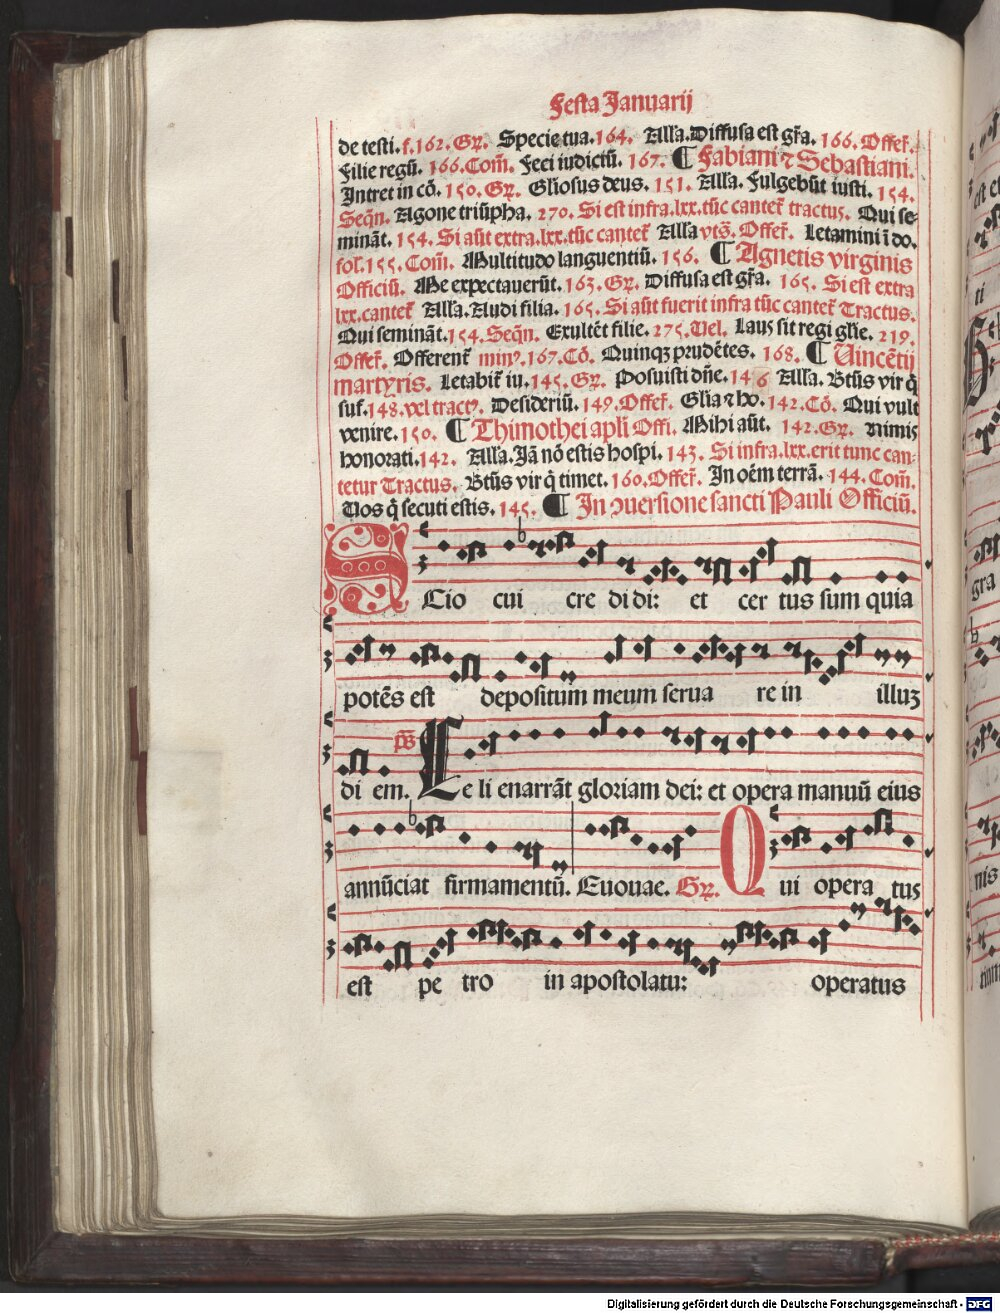 Festa Januarij
de testi. f. 162. Gꝛ. Specie tua. 164. Alľa. Diffusa est gr̃a. 166. Offeř.
Filie regũ. 166. Com̃. Feci iudiciũ. 167. ¶ Fabiani ⁊ Sebastiani.
Intret in cõ. 150. Gꝛ. Gliosus deus. 151. Alľa. Fulgebũt iusti. 154.
Seq̃n. Agone triũpha. 270. Si est infra .lxx. tũc canteř tractus. Qui se⸗
minãt. 154. Si aũt extra .lxx. tũc canteř Alľa vts̃. Offeř. Letamini ĩ do.
fol. 155. Com̃. Multitudo languentiũ. 156. ¶ Agnetis virginis
Officiũ. Me expectauerũt. 163. Gꝛ. Diffusa est gr̃a. 165. Si est extra
lxx. canteř Alľa. Audi filia. 165. Si aũt fuerit infra tũc canteř Tractus.
Qui seminãt. 154. Seq̃n. Exultẽt filie. 275. Uel. Laus sit regi glie. 219.
Offeř. Offerenť minꝰ. 167. Cõ. Quinqꝫ prudẽtes. 168. ¶ Uincẽtij
martyris. Letabiť iu. 145. Gꝛ. Posuisti dñe. 146 Alľa. Btũs vir q̃
suf. 148. vel tractꝰ. Desideriũ. 149. Offeř. Glia ⁊ ho. 142. Cõ. Qui vult
venire. 150. ¶ Thimothei apľi Offi. Mihi aũt. 142. Gꝛ. Nimis
honorati. 142. Alľa. Jã nõ estis hospi. 143. Si infra .lxx. erit tunc can⸗
tetur Tractus. Btũs vir q̃ timet. 160. Offeř. In oẽm terrã. 144. Com̃.
Uos q̃ secuti estis. 145. ¶ In ↄuersione sancti Pauli Officiũ.
SCio cui cre di di: et cer tus sum quia
potẽs est depositum meum serua re in illuꝫ
di em. p̃s Ce li enarrãt gloriam dei: et opera manuũ eius
annũciat firmamentũ. Euouae. Gꝛ. Q ui opera tus
est pe tro in apostolatu: operatus
Digitalisierung gefördert durch die Deutsche Forschungsgemeinschaft - DFG